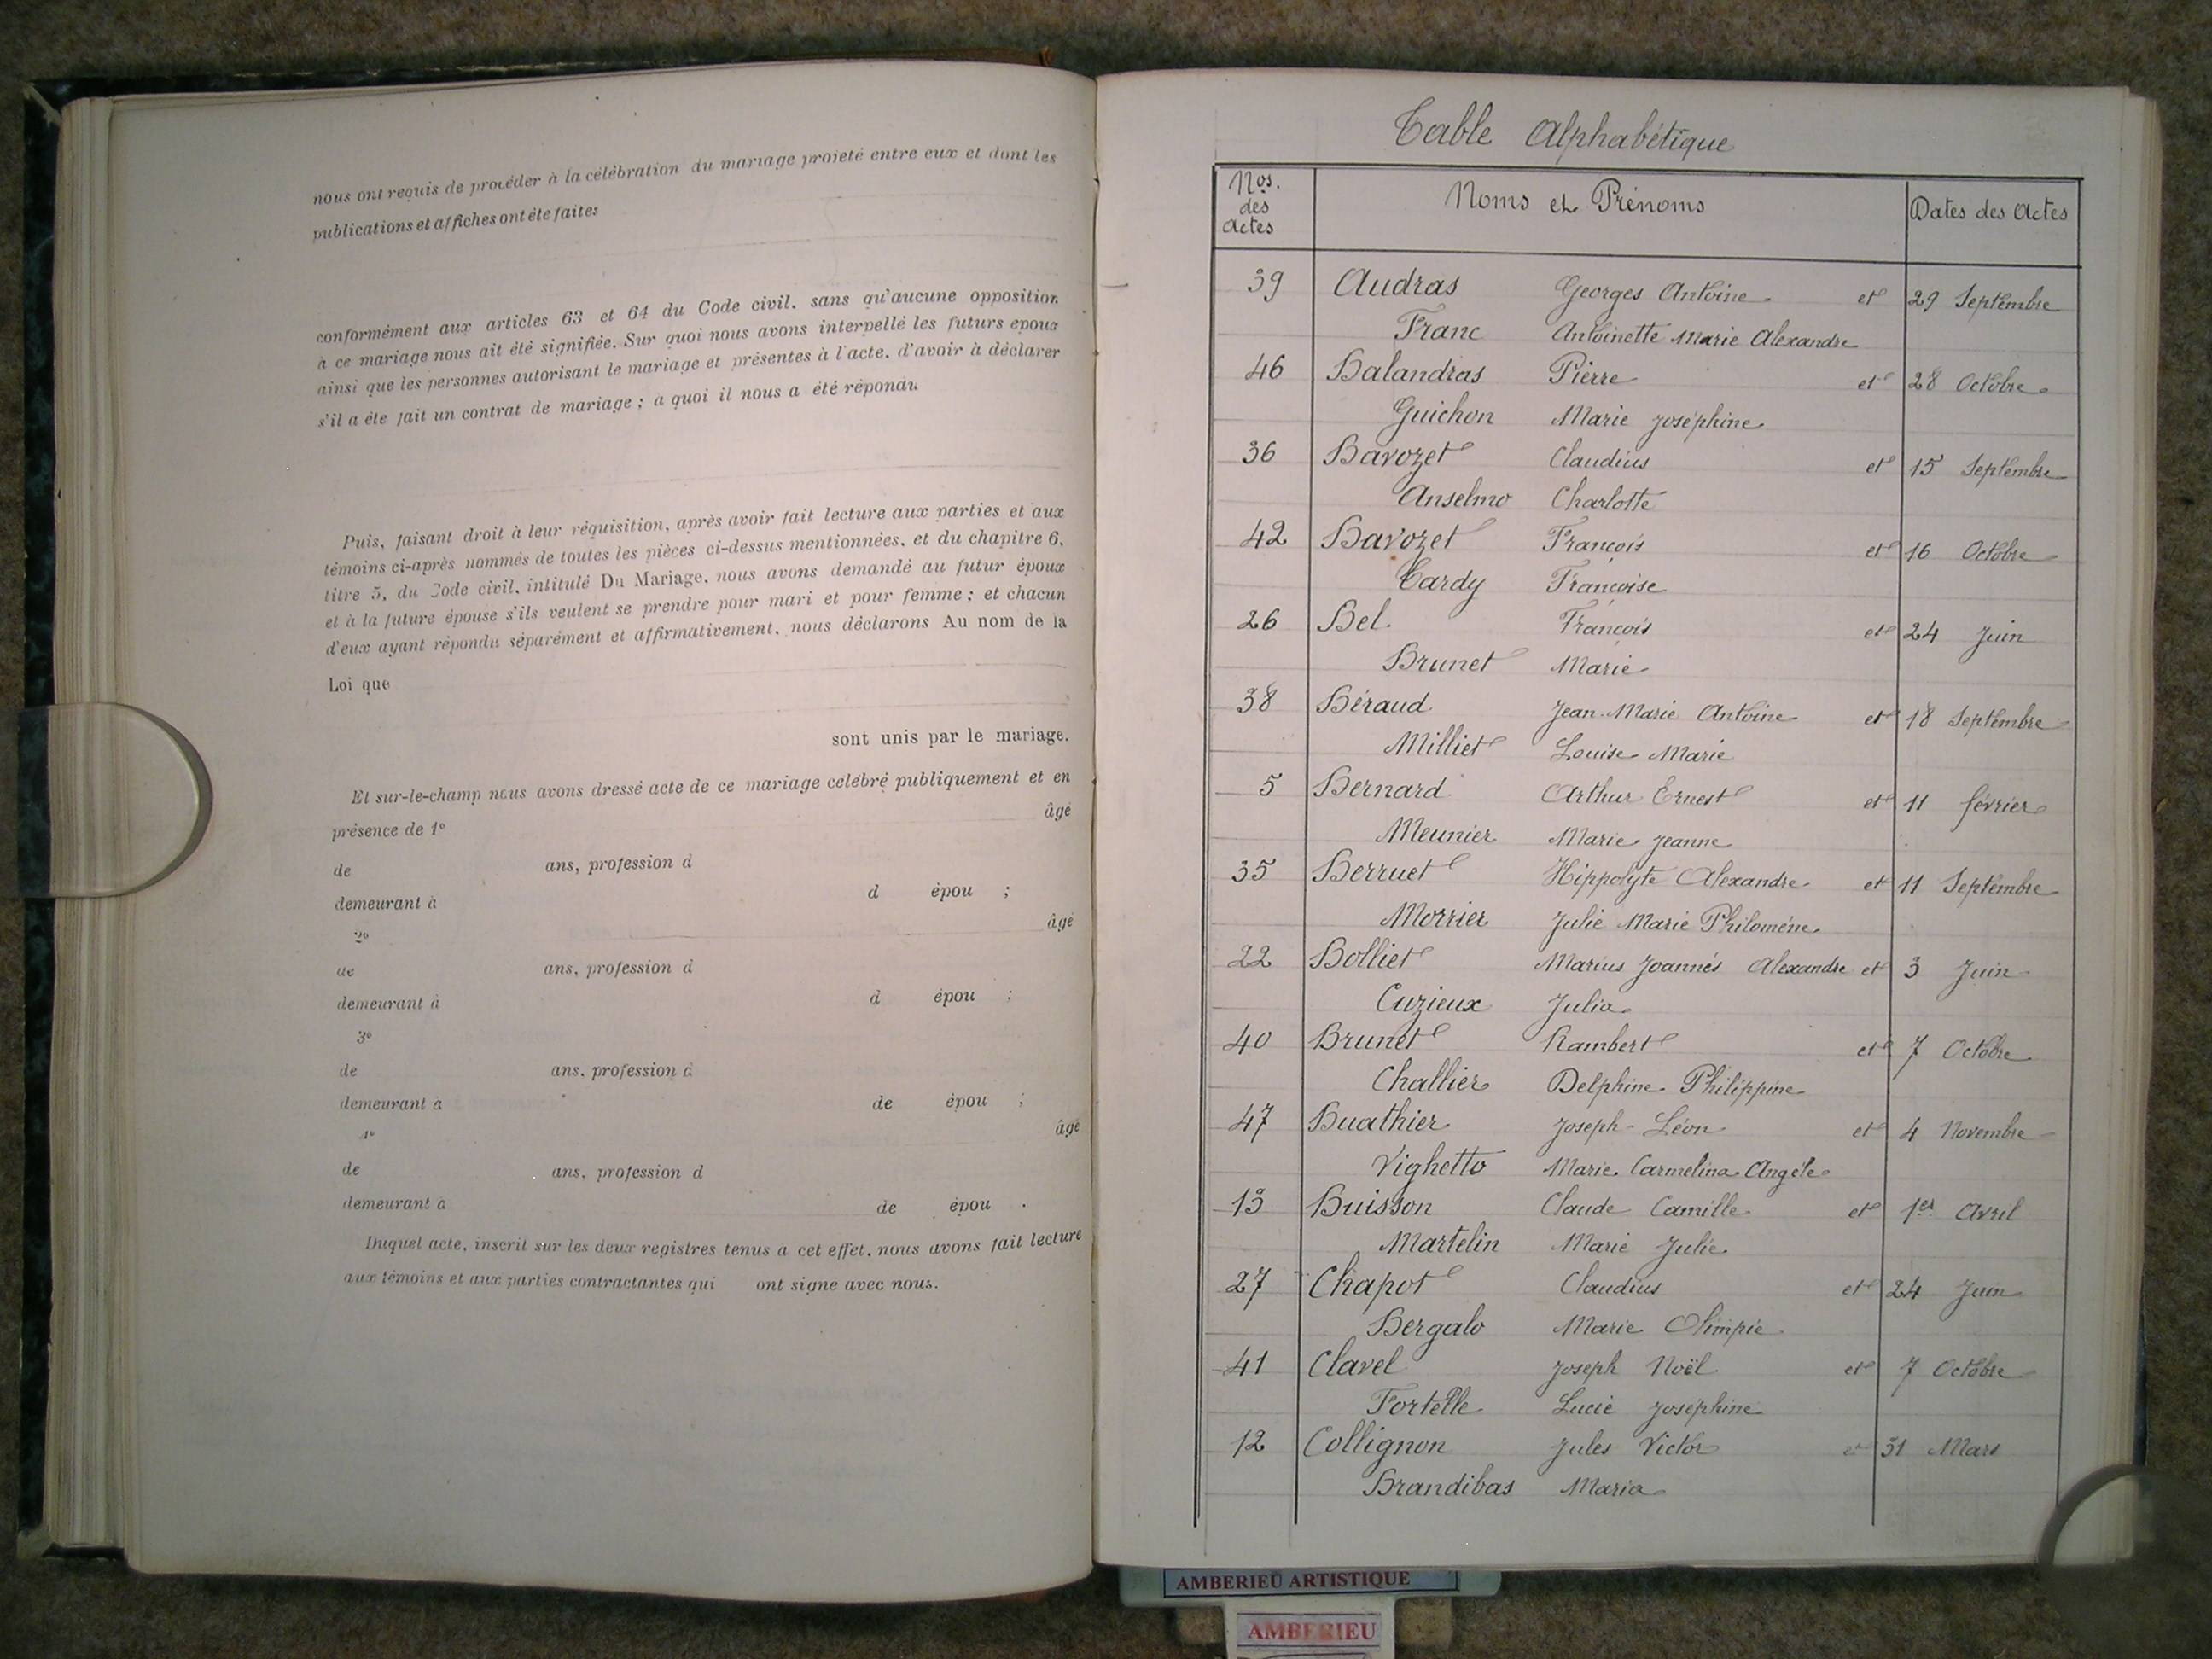 nous ont requis de procéder à la célébration du mariage projeté entre eux et dont les
publications et affiches ont été faites
conformément aux articles 63 et 64 du Code civil, sans qu'aucune opposition
à ce mariage nous ait été signifiée. Sur quoi nous avons interpellé les futurs époux
ainsi que les personnes autorisant le mariage et présentes à l'acte, d'avoir à déclarer
s'il a été fait un contrat de mariage ; à quoi il nous a été répondu
Puis, faisant droit à leur réquisition, après avoir fait lecture aux parties et aux
témoins ci-après nommés de toutes les pièces ci-dessus mentionnées, et du chapitre 6,
titre 5, du Code civil, intitulé Du Mariage, nous avons demandé au futur époux
et à la future épouse s'ils veulent se prendre pour mari et pour femme ; et chacun
d'eux ayant répondu séparément et affirmativement, nous déclarons Au nom de la
Loi que
sont unis par le mariage.
Et sur-le-champ nous avons dressé acte de ce mariage célébré publiquement et en
présence de 1º âgé
de ans, profession d
demeurant à d épou ;
2º âgé
de ans, profession d
demeurant à d épou ;
3º
de ans, profession d
demeurant à de épou ;
4º âgé
de ans, profession d
demeurant à de épou .
Duquel acte, inscrit sur les deux registres tenus à cet effet, nous avons fait lecture
aux témoins et aux parties contractantes qui ont signé avec nous.
Table Alphabétique
Nos. des Actes Noms et Prénoms Dates des Actes
39 Audras Georges Antoine et 29 Septembre
Franc Antoinette Marie Alexandre
46 Balandras Pierre et 28 Octobre
Guichon Marie Joséphine
36 Bavozet Claudius et 15 Septembre
Anselmo Charlotte
42 Bavozet François et 16 Octobre
Tardy Françoise
26 Bel François et 24 Juin
Brunet Marie
38 Béraud Jean-Marie Antoine et 18 Septembre
Milliet Louise Marie
5 Bernard Arthur Ernest et 11 février
Meunier Marie Jeanne
35 Berruet Hippolyte Alexandre et 11 Septembre
Morrier Julie Marie Philomène
22 Bolliet Marius Joannés Alexandre et 3 Juin
Cuzieux Julia
40 Brunet Rambert et 7 Octobre
Challier Delphine Philippine
47 Buathier Joseph-Léon et 4 Novembre
Vighetto Marie Carmelina Angèle
13 Buisson Claude Camille et 1er Avril
Martelin Marie Julie
27 Chapot Claudius et 24 Juin
Bergalo Marie Olimpie
41 Clavel Joseph Noël et 7 Octobre
Fortelle Lucie Joséphine
12 Collignon Jules Victor et 31 Mars
Brandibas Maria
AMBERIEU ARTISTIQUE
AMBERIEU